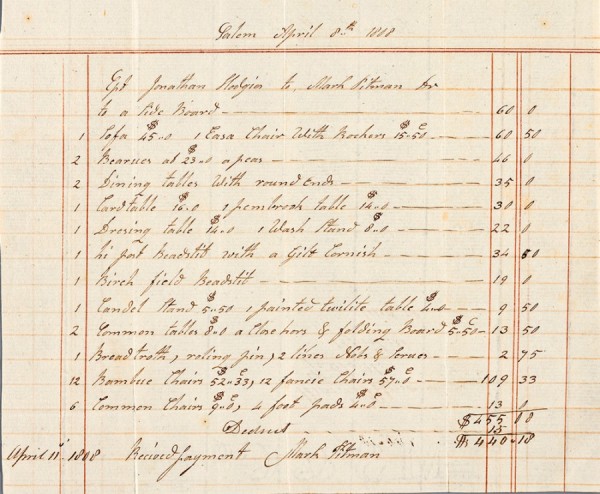 Salem April 8th 1808
Cpt Jonathan Hodges to Mark Pitman Dr
to a Side Board 60 0
1 Sofa $45=0 1 Easa Chair With Rockers $15=50c 60 50
2 Bearues at $23=0 a peas 46 0
2 Dining tables With round Ends 35 0
1 Card table $16=0 1 pembrook table $14=0 30 0
1 Dresing table $14=0 1 Wash Stand $8=0 22 0
1 hi post Beadstid with a Gilt Cornish 34 50
1 Birch field Beadstid 19 0
1 Candel Stand $5=50 1 painted twilite table $4=0 9 50
2 Common tables $8=0 a Close hors & folding Board $5=50c 13 50
1 Bread troth, roling pin, 2 Nobs & Scrues 2 75
12 Bambue Chairs $52=33c, 12 fancie Chairs $57=0c 109 33
6 Common Chairs $9=0c, 4 foot pads $4=0c 13 0
$455 18
Deduct 15
$440=18
April 11th 1808 Recievd payment Mark Pitman